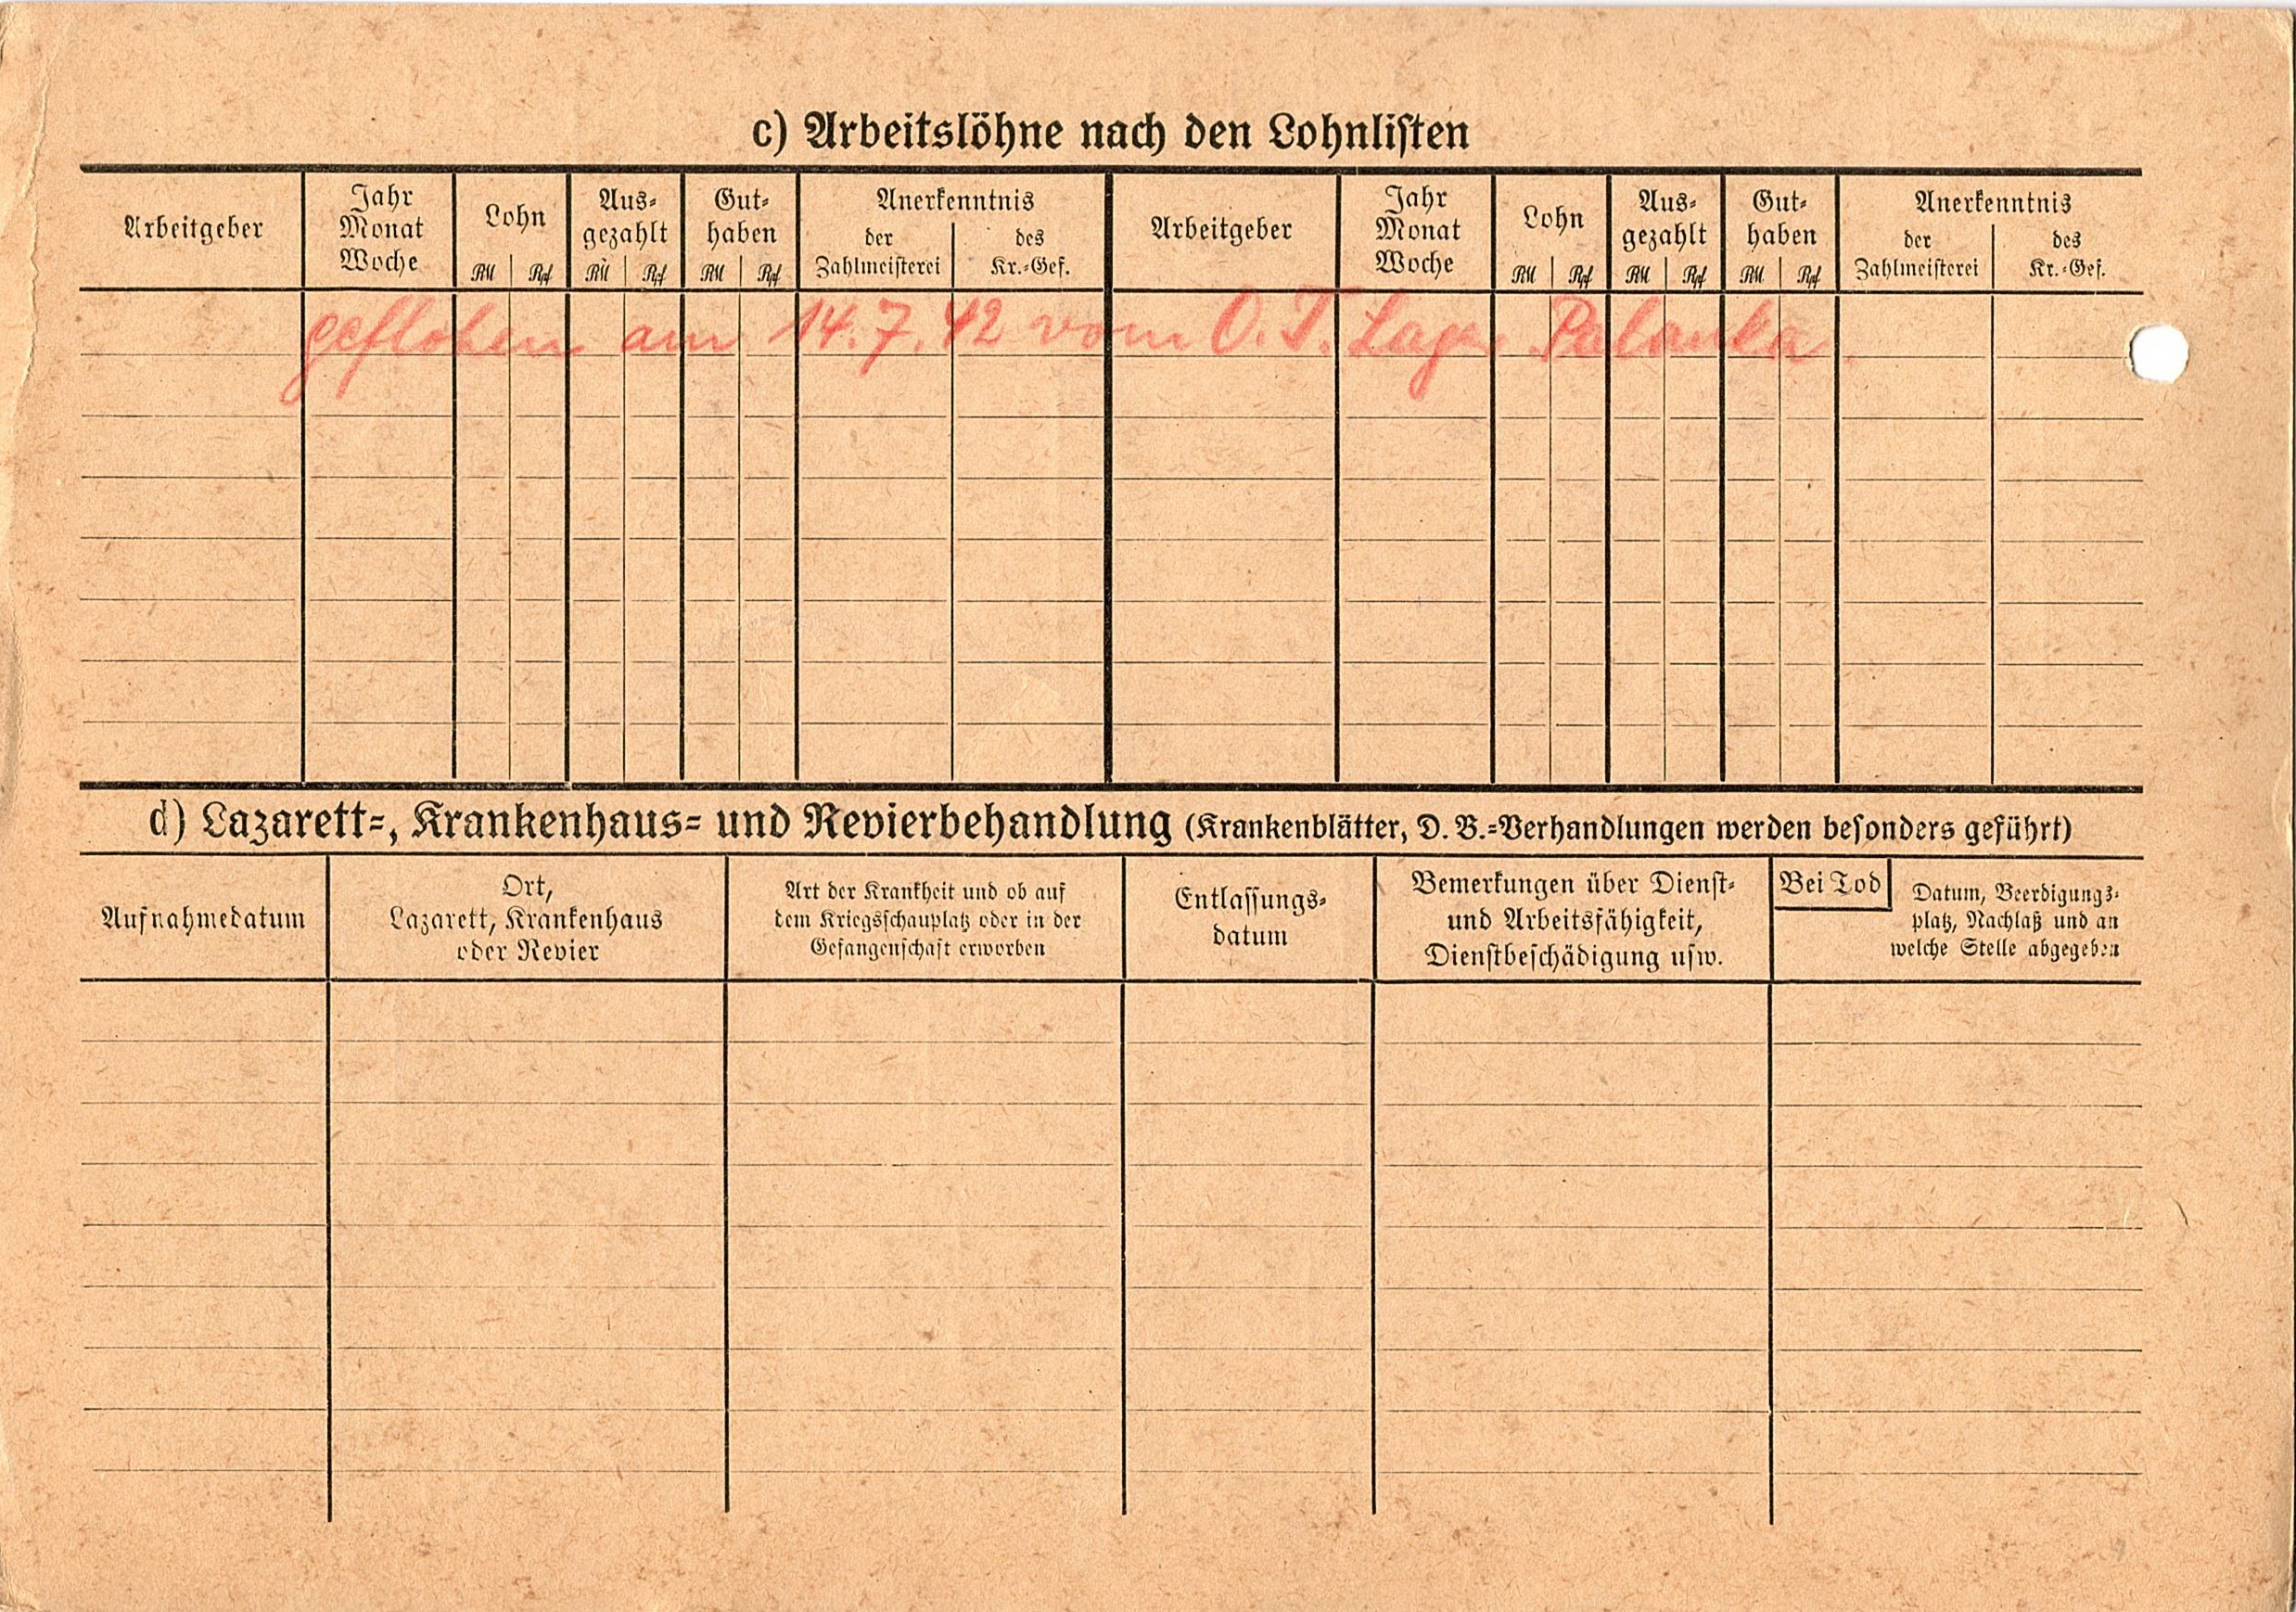 c) Arbeitslöhne nach den Lohnlisten
Arbeitgeber
Jahr
Monat
Woche
Lohn
RM Rpf
Aus-
gezahlt
RM Rpf
Gut-
haben
RM Rpf
Anerkenntnis
der
Zahlmeisterei
des
Kr.-Gef.
Arbeitgeber
Jahr
Monat
Woche
Lohn
RM Rpf
Aus-
gezahlt
RM Rpf
Gut-
haben
RM Rpf
Anerkenntnis
der
Zahlmeisterei
des
Kr.-Gef.
geflohen am 14.7.42 vom O.T. Lager Palanka.
d) Lazarett-, Krankenhaus- und Revierbehandlung (Krankenblätter, D. B.-Verhandlungen werden besonders geführt)
Aufnahmedatum
Ort,
Lazarett, Krankenhaus
oder Revier
Art der Krankheit und ob auf
dem Kriegsschauplatz oder in der
Gefangenschaft erworben
Entlassungs-
datum
Bemerkungen über Dienst-
und Arbeitsfähigkeit,
Dienstbeschädigung usw.
Bei Tod
Datum, Beerdigungs-
platz, Nachlaß und an
welche Stelle abgegeben